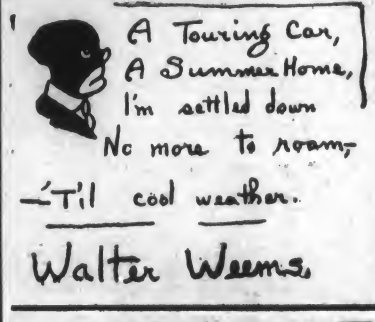 A Touring Car,
A Summer Home,
I'm settled down
No more to roam,-
-'T'il cool weather.
Walter Weems.